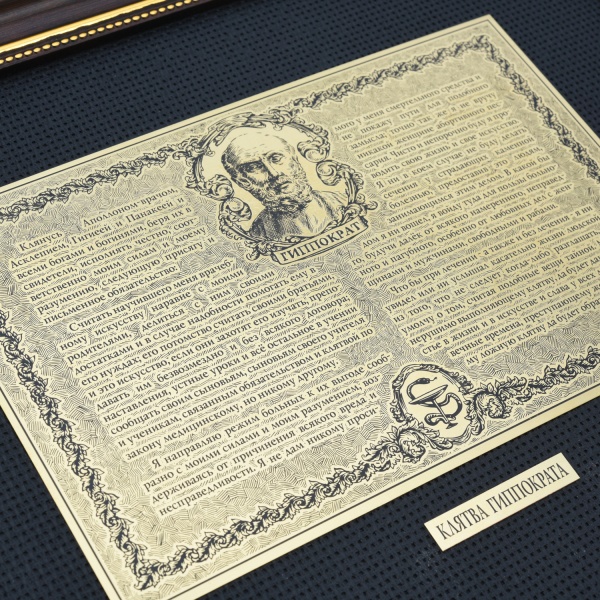 Клянусь Аполлоном врачом,
Асклепием, Гигиеей и Панакеей и
всеми богами и богинями, беря их в
свидетели, исполнять честно, соот-
ветственно моим силам и моему
разумению, следующую присягу и
письменное обязательство:
Считать научившего меня врачеб-
ному искусству наравне с моими
родителями, делиться с ним своими
достатками и в случае надобности помогать ему в
его нуждах; его потомство считать своими братьями,
и это искусство, если они захотят его изучать, препо-
давать им безвозмездно и без всякого договора;
наставления, устные уроки и всё остальное в учении
сообщать своим сыновьям, сыновьям своего учителя
и ученикам, связанным обязательством и клятвой по
закону медицинскому, но никому другому.
Я направляю режим больных к их выгоде сооб-
разно с моими силами и моим разумением, воз-
держиваясь от причинения всякого вреда и
несправедливости. Я не дам никому проси-
ГИППОКРАТ
мого у меня смертельного средства и
не покажу пути для подобного
замысла; точно так же я не вручу
никакой женщине абортивного пес-
сария. Чисто и непорочно буду я про-
водить свою жизнь и своё искусство.
Я ни в коем случае не буду делать
сечения у страдающих каменной
болезнью, предоставив это людям,
занимающимся этим делом. В какой бы
дом я ни вошёл, я войду туда для пользы больно-
го, будучи далёк от всякого намеренного, неправед-
ного и пагубного, особенно от любовных дел с жен-
щинами и мужчинами, свободными и рабами.
Что бы при лечении - а также и без лечения - я ни
увидел или ни услышал касательно жизни людской
из того, что не следует когда-либо разглашать, я
умолчу о том, считая подобные вещи тайной. Мне,
нерушимо выполняющему клятву, да будет сча-
стье в жизни и в искусстве и слава у всех
вечные времена, преступающему
му ложную клятву да будет обра
КЛЯТВА ГИППОКРАТА